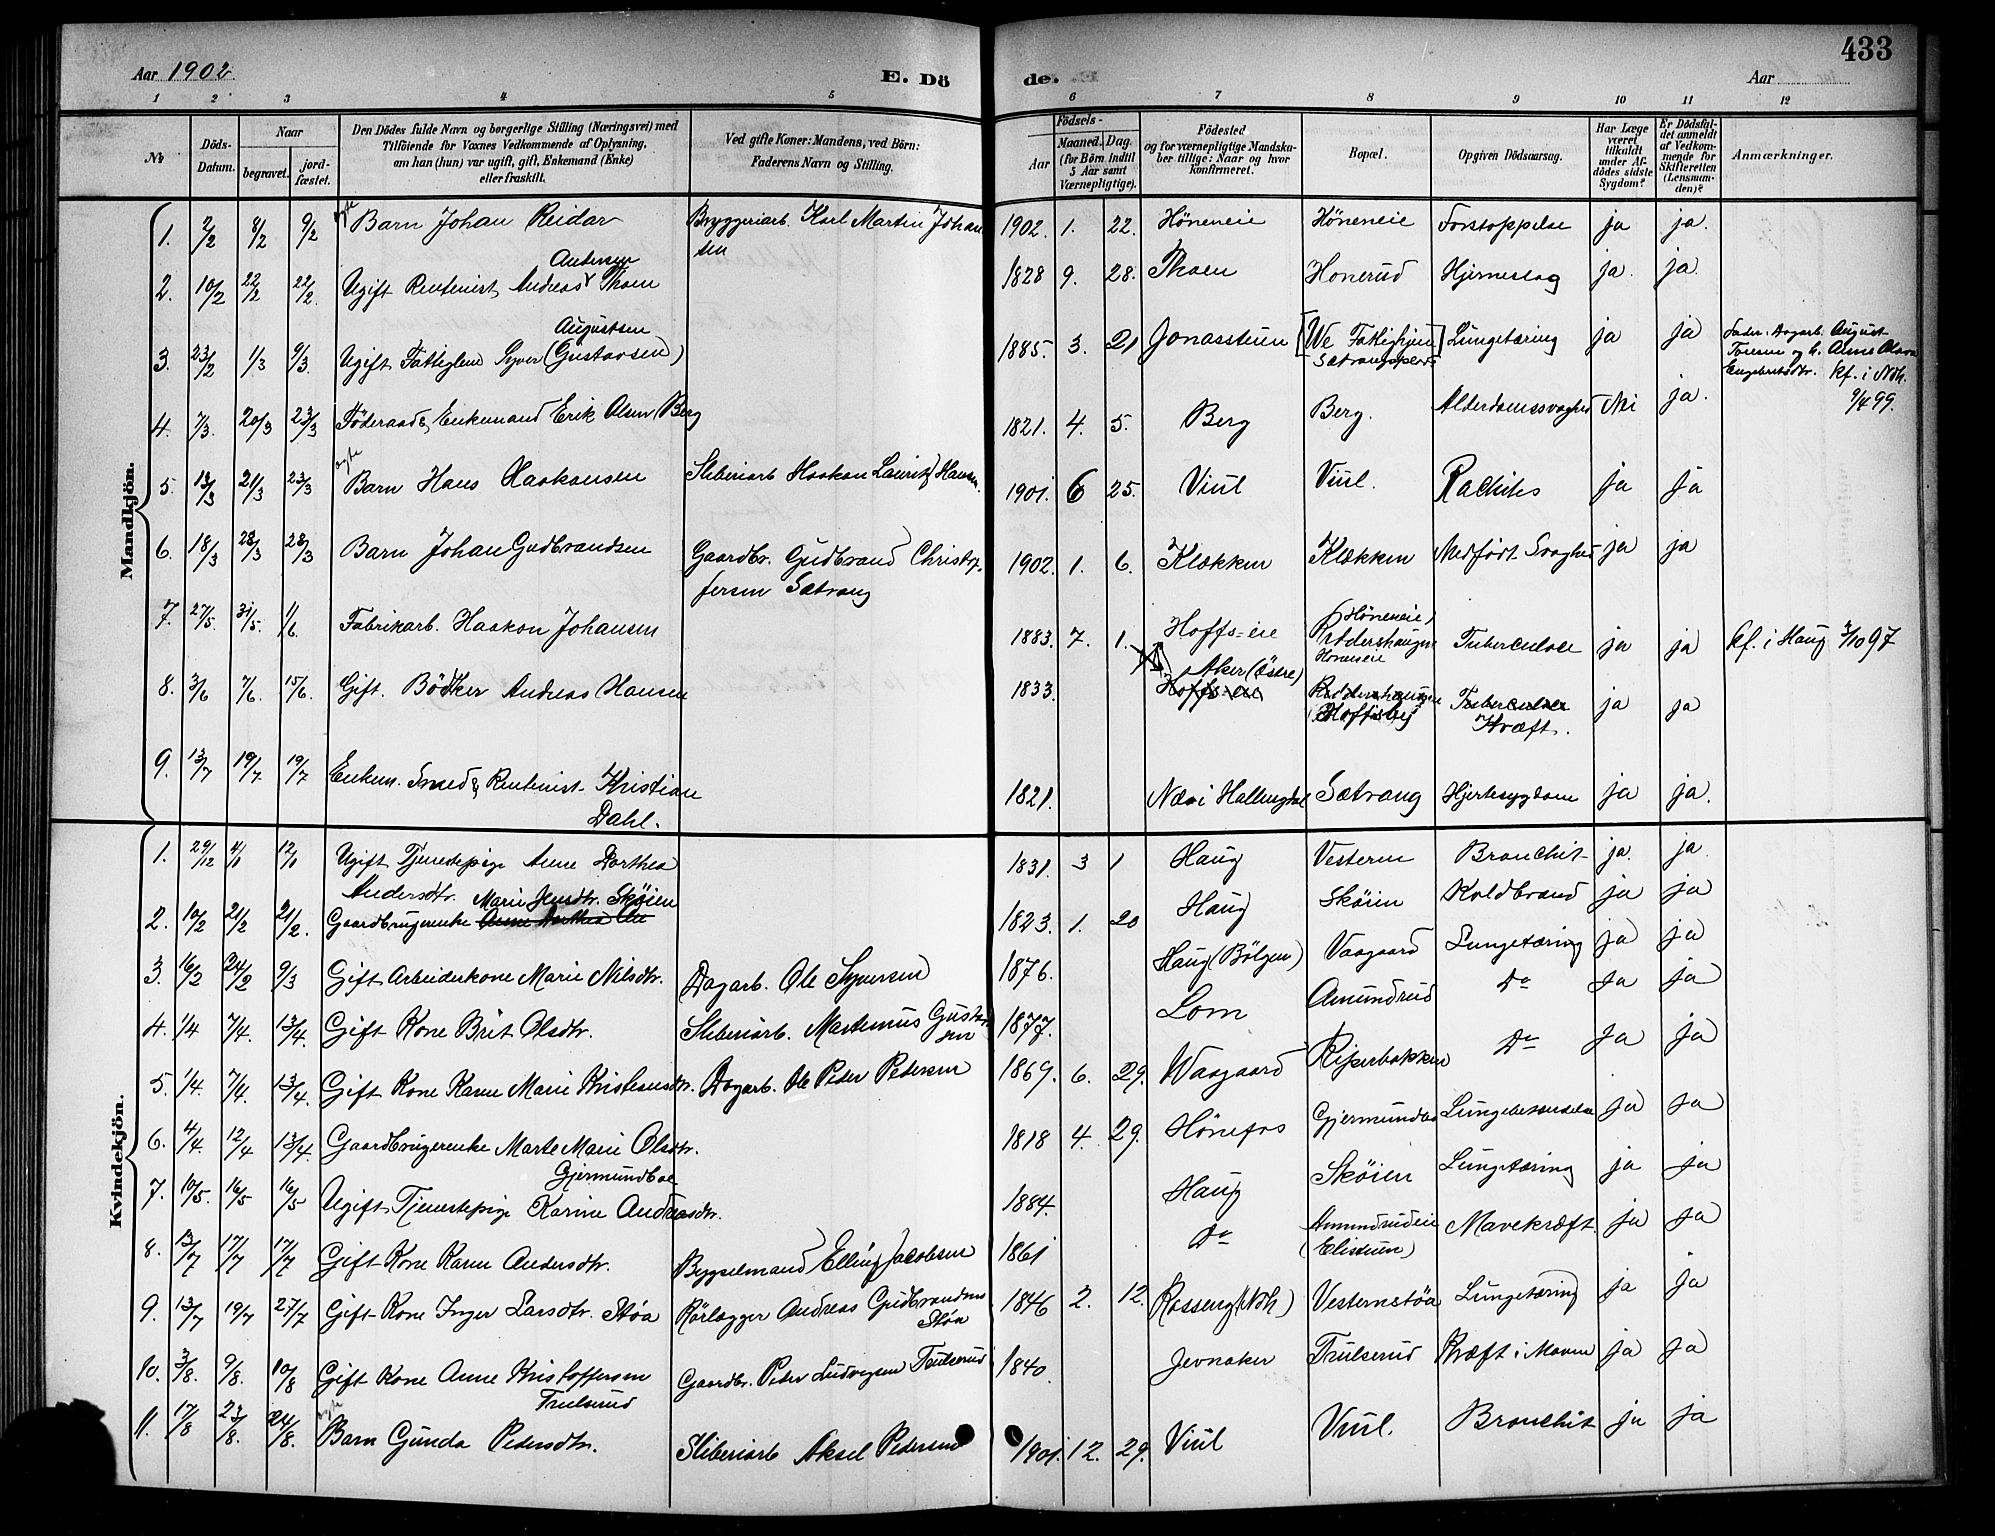 433
Aar 1902. E. Dö de. Aar
1 2 3 4 5 6 7 8 9 10 11 12
No
Döds-Datum.
Naar begravet. jord-fæstet.
Den Dödes fulde Navn og borgerlige Stilling (Næringsvei) med
Tilföiende for Voxnes Vedkommende af Oplysning,
om han (hun) var ugift, gift, Enkemand (Enke)
eller fraskilt.
Ved gifte Koner: Mandens, ved Börn:
Faderens Navn og Stilling.
Födsels-
Aar Maaned. Dag.
(for Börn indtil
5 Aar samt
Værnepligtige).
Födested
og for værnepligtige Mandska-
ber tillige: Naar og hvor
konfirmeret.
Bopæl.
Opgiven Dödsaarsag.
Har Læge
været
tilkaldt
under Af-
dödes sidste
Sygdom?
Er Dödsfal-
det anmeldt
af Vedkom-
mende for
Skifteretten
(Lensman-
den)?
Anmærkninger.
Mandkjön.
1. 2/2 8/2 9/2 ægte Barn Johan Reidar Bryggeriarb. Karl Martin Johansen 1902. 1. 22. Höneneie Höneneie Forstoppelse ja ja.
2. 10/2 22/2 22/2. Ugift Rentenist Andreas Andersen Thoen 1828 9. 28. Thoen Honerud Hjerneslag ja. ja.
3. 23/2 1/3 9/3. Ugift Fattiglem Syver Augustsen (Gustavsen) 1885. 3. 21 Jonasstuen [We Fattighjem Sætrangsperr] Lungetæring ja ja Fader: Dagarb. August
Toresen og h. Anne Olava
Engebretsdtr. kf. i Ndh.
9/4 99.
4. 7/3. 20/3 23/3 Föderaads Enkemand Erik Olsen Berg 1821. 4. 5. Berg Berg. Alderdomssvaghed Nei ja.
5. 13/3 21/3 23/3 ægte Barn Hans Haakonsen Sliberiarb Haakon Lauritz Hansen. 1901. 6 25. Viul Viul. Rachitis ja ja
6. 18/3 23/3 23/3 Barn Johan Gudbrandsen Gaardbr. Gudbrand Christof-
fersen Sætrang 1902. 1. 6. Klækken Klækken Medfödt Svaghed ja ja
7. 27/5. 31/5. 1/6. Fabrikarb. Haakon Johansen 1883. 7. 1. Hoffs-eie (Höneneie) Riddershaugen Höneneie Tuberculose ja ja kf. i Haug 3/10 97
8. 3/6 7/6. 15/6. Gift. Bödker Andreas Hansen 1833. Aker (Östre) Hoffs-eie Riddershaugen Tuberculose Kræft. ja ja
9. 13/7 19/7 19/7 Enkem. Smed & Rentenist Kristian
Dahl. 1821. Næs i Hallingdal Sætrang Hjertesygdom ja ja.
Kvindekjön.
1. 29/12 4/1 12/1 Ugift Tjenestepige Anne Dorthea
Andersdtr. 1831. 3 1 Haug Vestern Bronchit ja. ja
2. 10/2 21/2 21/2. Gaardbrugerenke Marie Jensdtr. Skøien 1823. 1. 20 Haug Skøien Koldbrand ja ja
3. 16/2 24/2 9/3 Gift Arbeiderkone Marie Nilsdtr. Dagarb. Ole Syversen 1876. Haug (Bölgen) Vaagaard Lungetæring ja ja
4. 1/4 7/4. 13/4. Gift Kone Brit Olsdtr. Sliberiarb. Martinius Gustavsen 1877. Lom Amundrud Do ja ja
5. 1/4. 7/4. 13/4. Gift Kone Karen Marie Kristensdtr. Dagarb. Ole Peder Pedersen 1869. 6. 29. Waagaard Riperbakken Do ja ja
6. 4/4. 12/4 13/4. Gaardbrugerenke Marte Marie Olsdtr.
Gjermundboe 1818 4. 29. Hönefos Gjermundbo Lungebetændelse ja ja
7. 10/5. 16/5 16/5 Ugift Tjenestepige Karine Andreasdtr. 1884. Haug Skøien Lungetæring ja ja
8. 13/7 17/7 17/7 Gift Kone Karen Andersdtr. Bygselmand Elling Jacobsen 1861 Do Amundrudeie
(Elistuen) Mavekræft. ja ja
9. 13/7 19/7 27/7 Gift Kone Inger Larsdtr. Støa Rörlægger Andreas Gudbrandsen Støa 1846 2. 12. Rosseng (Ndh) Vesternstøa Lungetæring ja ja
10. 3/8. 9/8. 10/8 Gift Kone Anne Kristoffersen
Trulserud Gaardbr. Peder Ludvigsen Trulserud 1840. Jevnaker Trulserud Kræft i Maven ja ja
11. 17/8 23/8. 24/8. ægte Barn Gunda Pedersdtr. Sliberiarb Aksel Pedersen 1901. 12. 29. Viul Viul. Bronchit ja ja